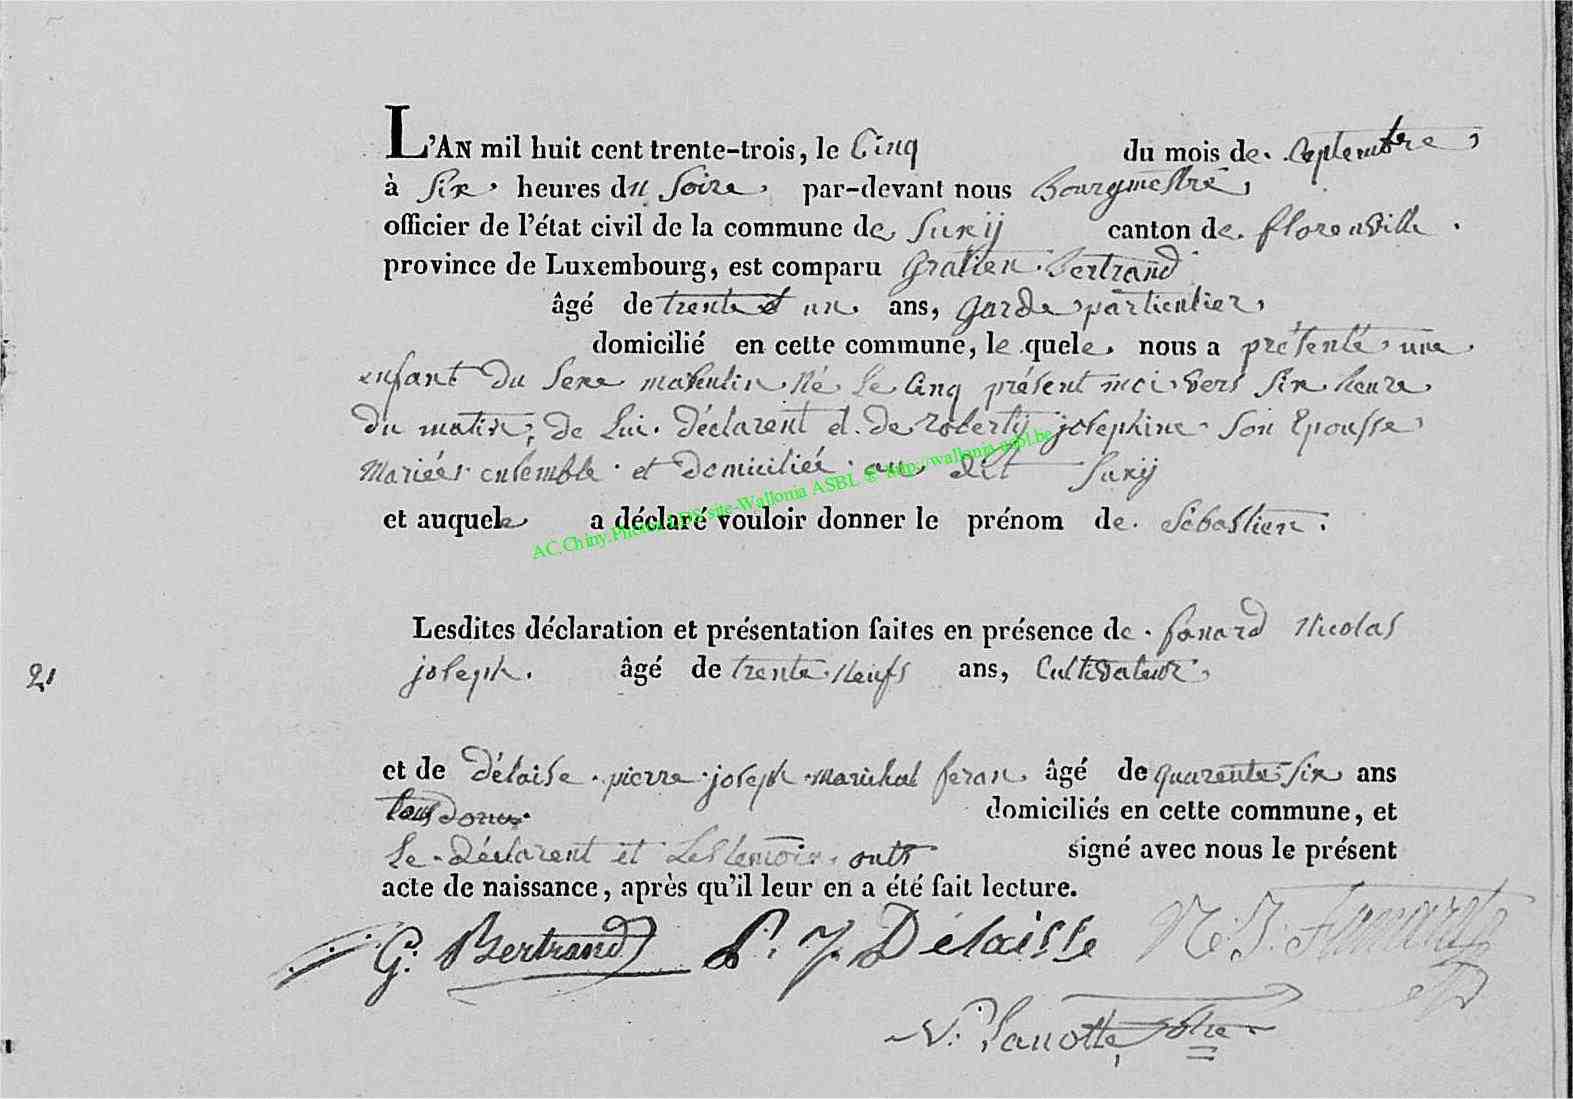 L'AN mil huit cent trente-trois, le Cinq du mois de. Ceptembre,
à Six, heures du Soire, par-devant nous Bourgmestre,
officier de l'état civil de la commune de Suxij canton de. florenville.
province de Luxembourg, est comparu Gratien Bertrand
âgé de trente et un ans, garde particulier,
domicilié en cette commune, le quele, nous a présenté, une
enfant du Sexe masculin Né Le Cinq présent moi vers Six heure
du matin, de Lui. déclarent et de roberty josephine Son Epousse,
Mariées ensemble et domiciliée au dit Suxij
et auquele a déclaré vouloir donner le prénom de. Sébastien.
AC.Chiny.Photos LDS site-Wallonia ASBL © http://wallonia-asbl.be
Lesdites déclaration et présentation faites en présence de. Nicolas
21 joseph. âgé de trente Neufs ans, Cultivateur,
et de délaise pierre joseph marichal feran âgé de quarente Six ans
tous domiciliés en cette commune, et
Le déclarent et Les temoin onts signé avec nous le présent
acte de naissance, après qu'il leur en a été fait lecture.
G: Bertrand P. J. Délaisse N: J: